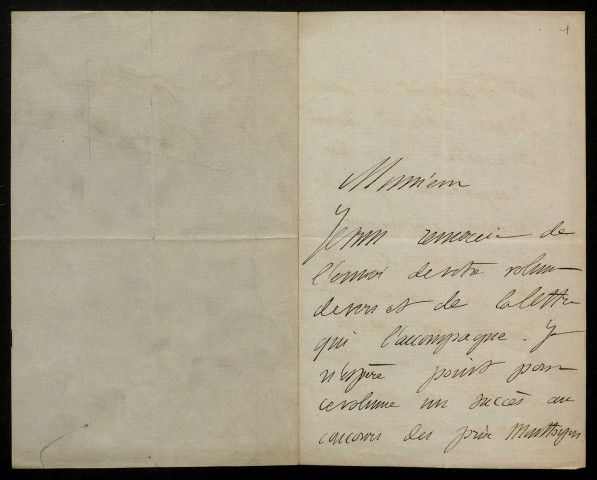 1
Monsieur
Je vous remercie de
l'envoi de votre volume
de vers et de la lettre
qui l'accompagne. Je
n'espère point pour
ce volume un succès au
concours des prix Monthyon